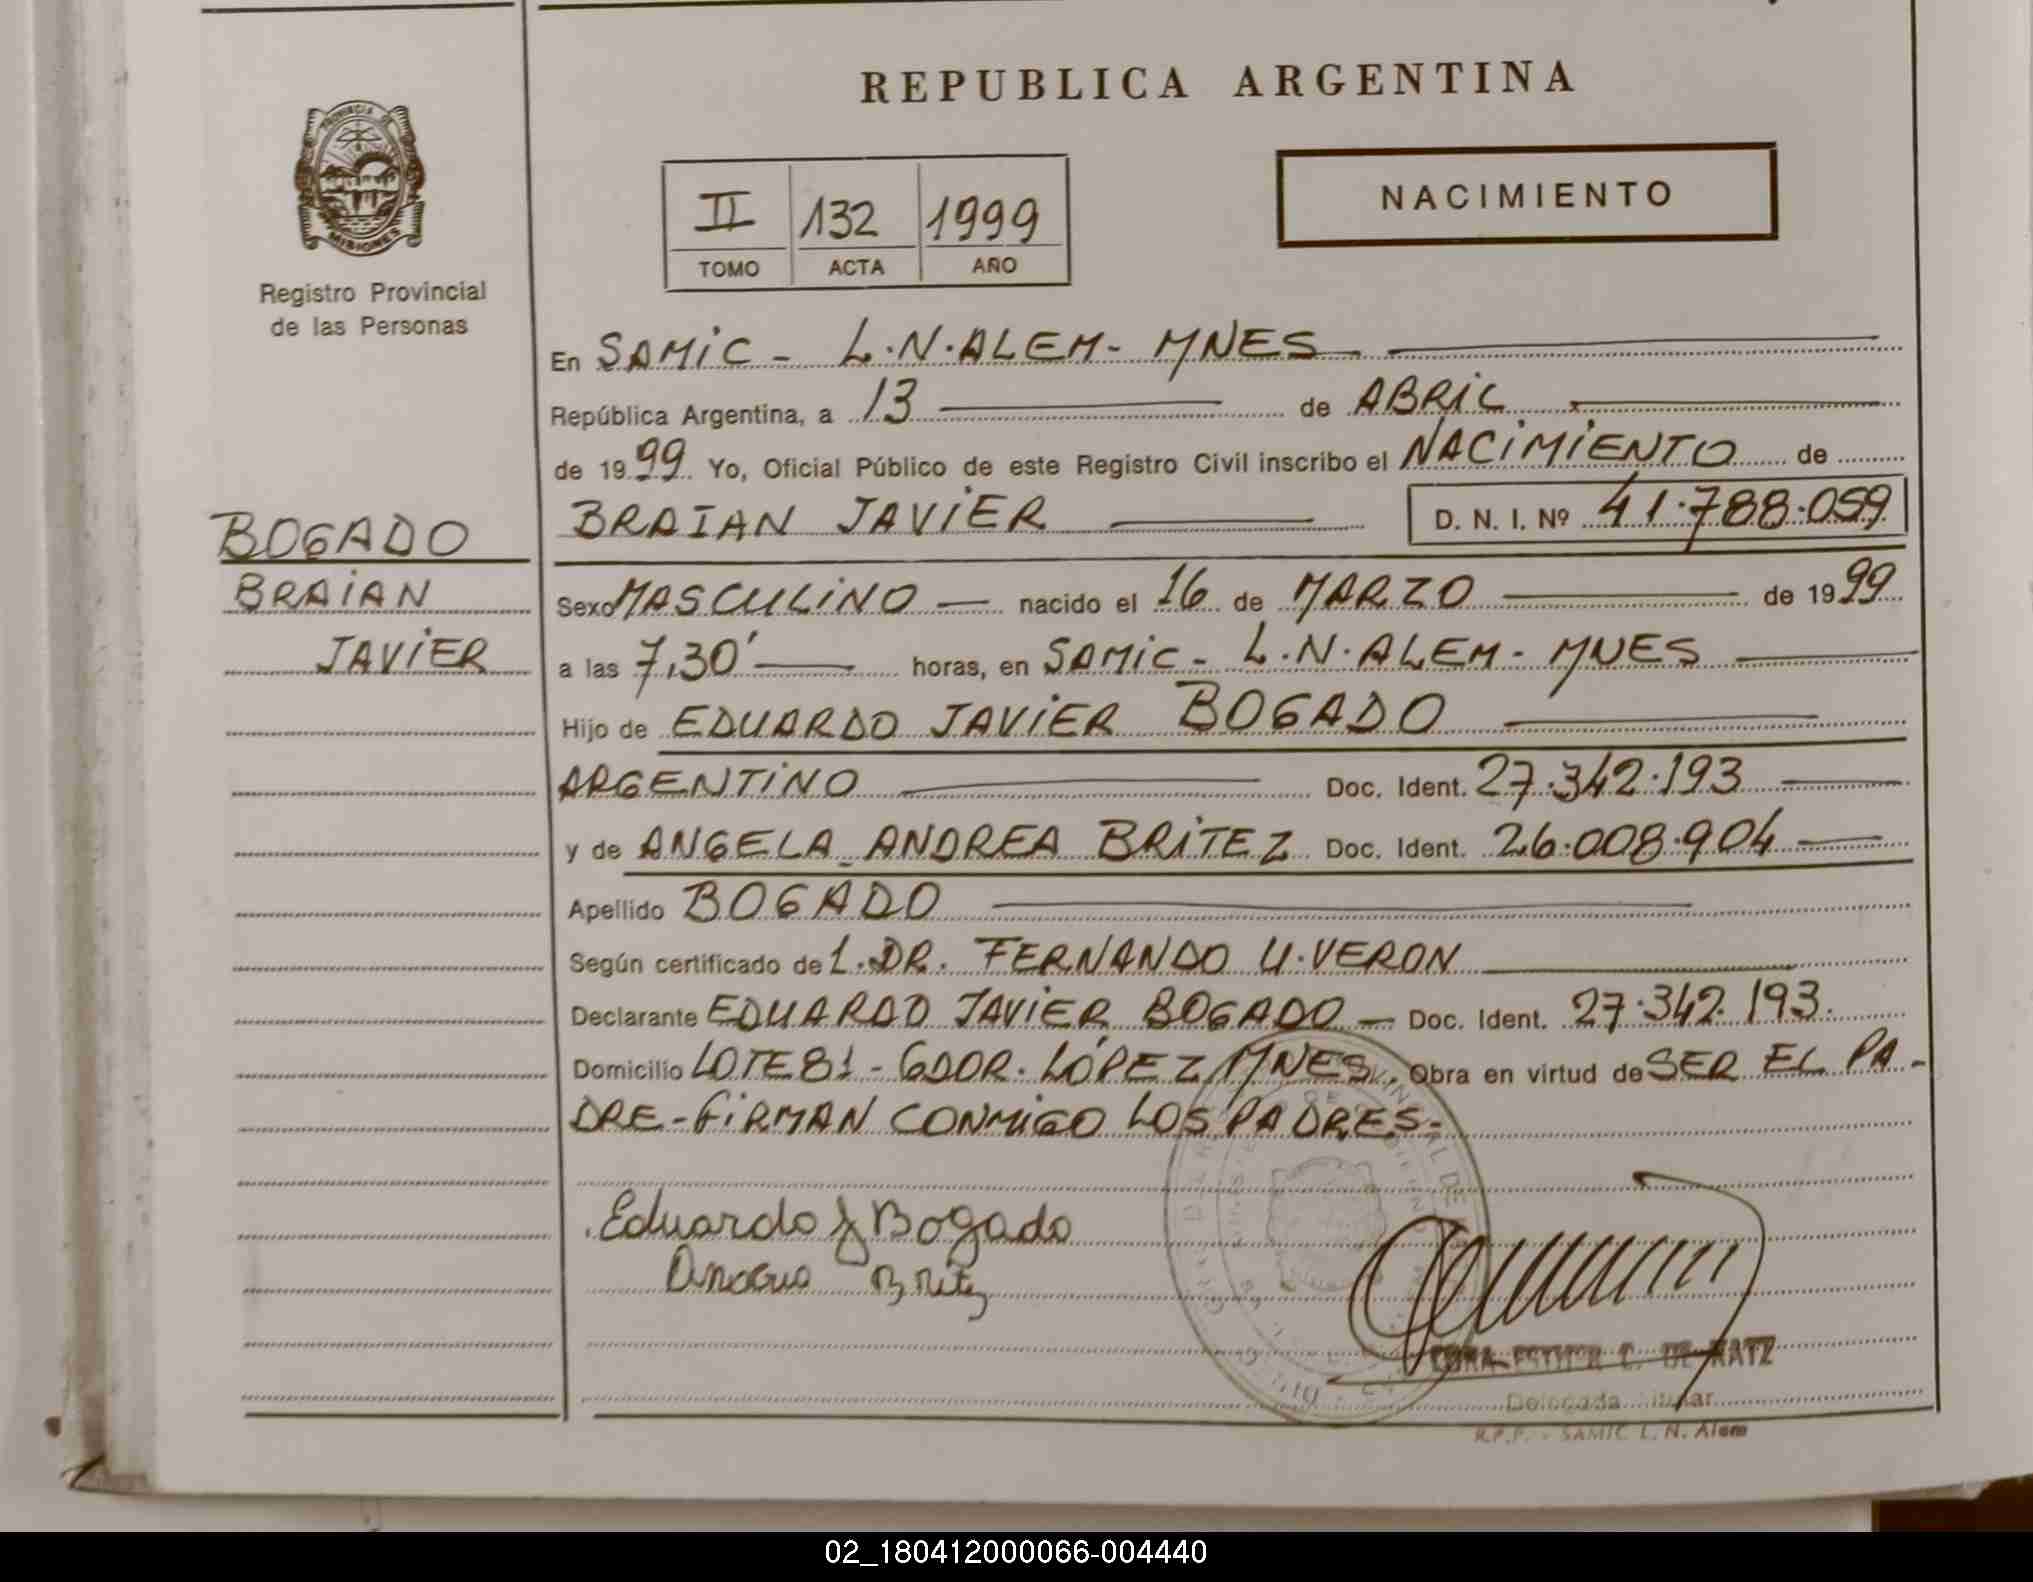 REPUBLICA ARGENTINA
PROVINCIA DE
MISIONES
Registro Provincial
de las Personas
NACIMIENTO
II 132 1999
TOMO ACTA AÑO
En SAMIC - L.N.ALEM - MNES
República Argentina, a 13 de ABRIL
de 1999 Yo, Oficial Público de este Registro Civil inscribo el NACIMIENTO de
BRAIAN JAVIER D. N. I. Nº 41.788.059
BOGADO
BRAIAN
JAVIER
Sexo MASCULINO nacido el 16 de MARZO de 1999
a las 7,30' horas, en SAMIC - L.N.ALEM - MNES
Hijo de EDUARDO JAVIER BOGADO
ARGENTINO Doc. Ident. 27.342.193
y de ANGELA ANDREA BRITEZ Doc. Ident. 26.008.904
Apellido BOGADO
Según certificado de 1. DR. FERNANDO U. VERON
Declarante EDUARDO JAVIER BOGADO Doc. Ident. 27.342.193.
Domicilio LOTE 81 - GDOR. LÓPEZ MNES. Obra en virtud de SER EL PA-
DRE - FIRMAN CONMIGO LOS PADRES-
Eduardo J Bogado
Britez
C. DE RATZ
Delegada Titular
R.P.P. - SAMIC L. N. Alem
02_180412000066-004440